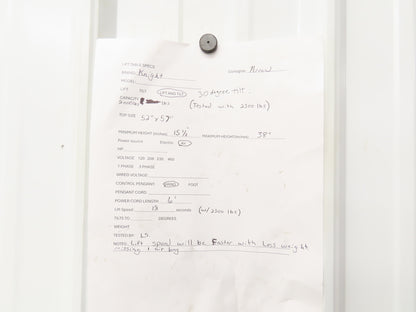 LIFT TABLE SPECS
BRAND Knight
MODEL
LIFT TILT LIFT AND TILT 30 degree tilt
CAPACITY lbs (Tested with 2300 lbs)
TOP SIZE 52" x 57"
MINIMUM HEIGHT (Inches) 15 ½" MAXIMUM HEIGHT (Inches) 38"
Power source Electric Air
HP
VOLTAGE 120 208 230 460
1 PHASE 3 PHASE
WIRED VOLTAGE
CONTROL PENDANT HAND FOOT
PENDANT CORD
POWER CORD LENGTH 6'
Lift Speed seconds (w/ 2300 lbs)
TILTS TO DEGREES
WEIGHT
TESTED BY: LS
NOTES: Lift speed will be faster with less weight
missing 1 air bag